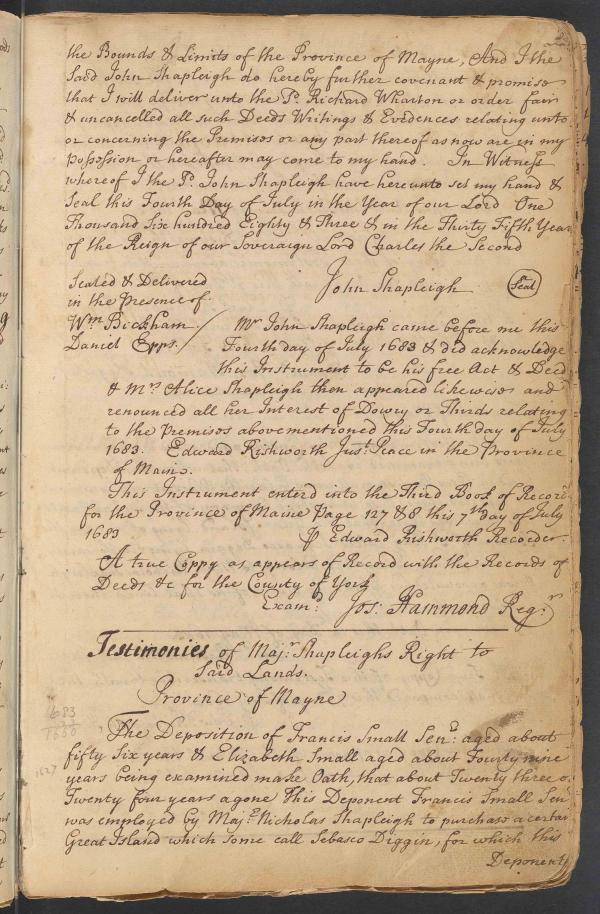 the Bounds & Limits of the Province of Mayne, And I the
said John Shapleigh do hereby further covenant & promise
that I will deliver unto the Sd. Richard Wharton or order fair
& uncancelled all such Deeds Writings & Evidences relating unto
or concerning the Premises or any part thereof as now are in my
possession or hereafter may come to my hand. In Witness
whereof I the Sd. John Shapleigh have hereunto set my hand &
Seal this Fourth Day of July in the Year of our Lord One
Thousand Six hundred Eighty & Three & in the Thirty Fifth Year
of the Reign of our Soveraign Lord Charles the Second
John Shapleigh (Seal)
Sealed & Delivered
in the Presence of
Wm Bickham
Daniel Epps.
Mr John Shapleigh came before me this
Fourth day of July 1683 & did acknowledge
this Instrument to be his free Act & Deed
& Mrs Alice Shapleigh then appeared likewise and
renounced all her Interest of Dowry or Thirds relating
to the Premises abovementioned this Fourth day of July
1683. Edward Rishworth Just. Peace in the Province
of Main.
This Instrument enterd into the Third Book of Record
for the Province of Maine Page 127 & 8 this 7th day of July
1683 Edward Rishworth Recorder.
A true Coppy as appears of Record with the Records of
Deeds &c for the County of York
Examd. Jos: Hammond Regr
Testimonies of Majr Shapleighs Right to
Said Lands.
Province of Mayne
1683
The Deposition of Francis Small Senr: aged about
fifty six years & Elizabeth Small aged about Fourty nine
1627
years being examined make Oath, that about Twenty three or
Twenty four years agone This Deponent Francis Small Senr
was employed by Majr Nicholas Shapleigh to purchase a certain
Great Island which some call Sebasco Diggin, for which this
Deponent